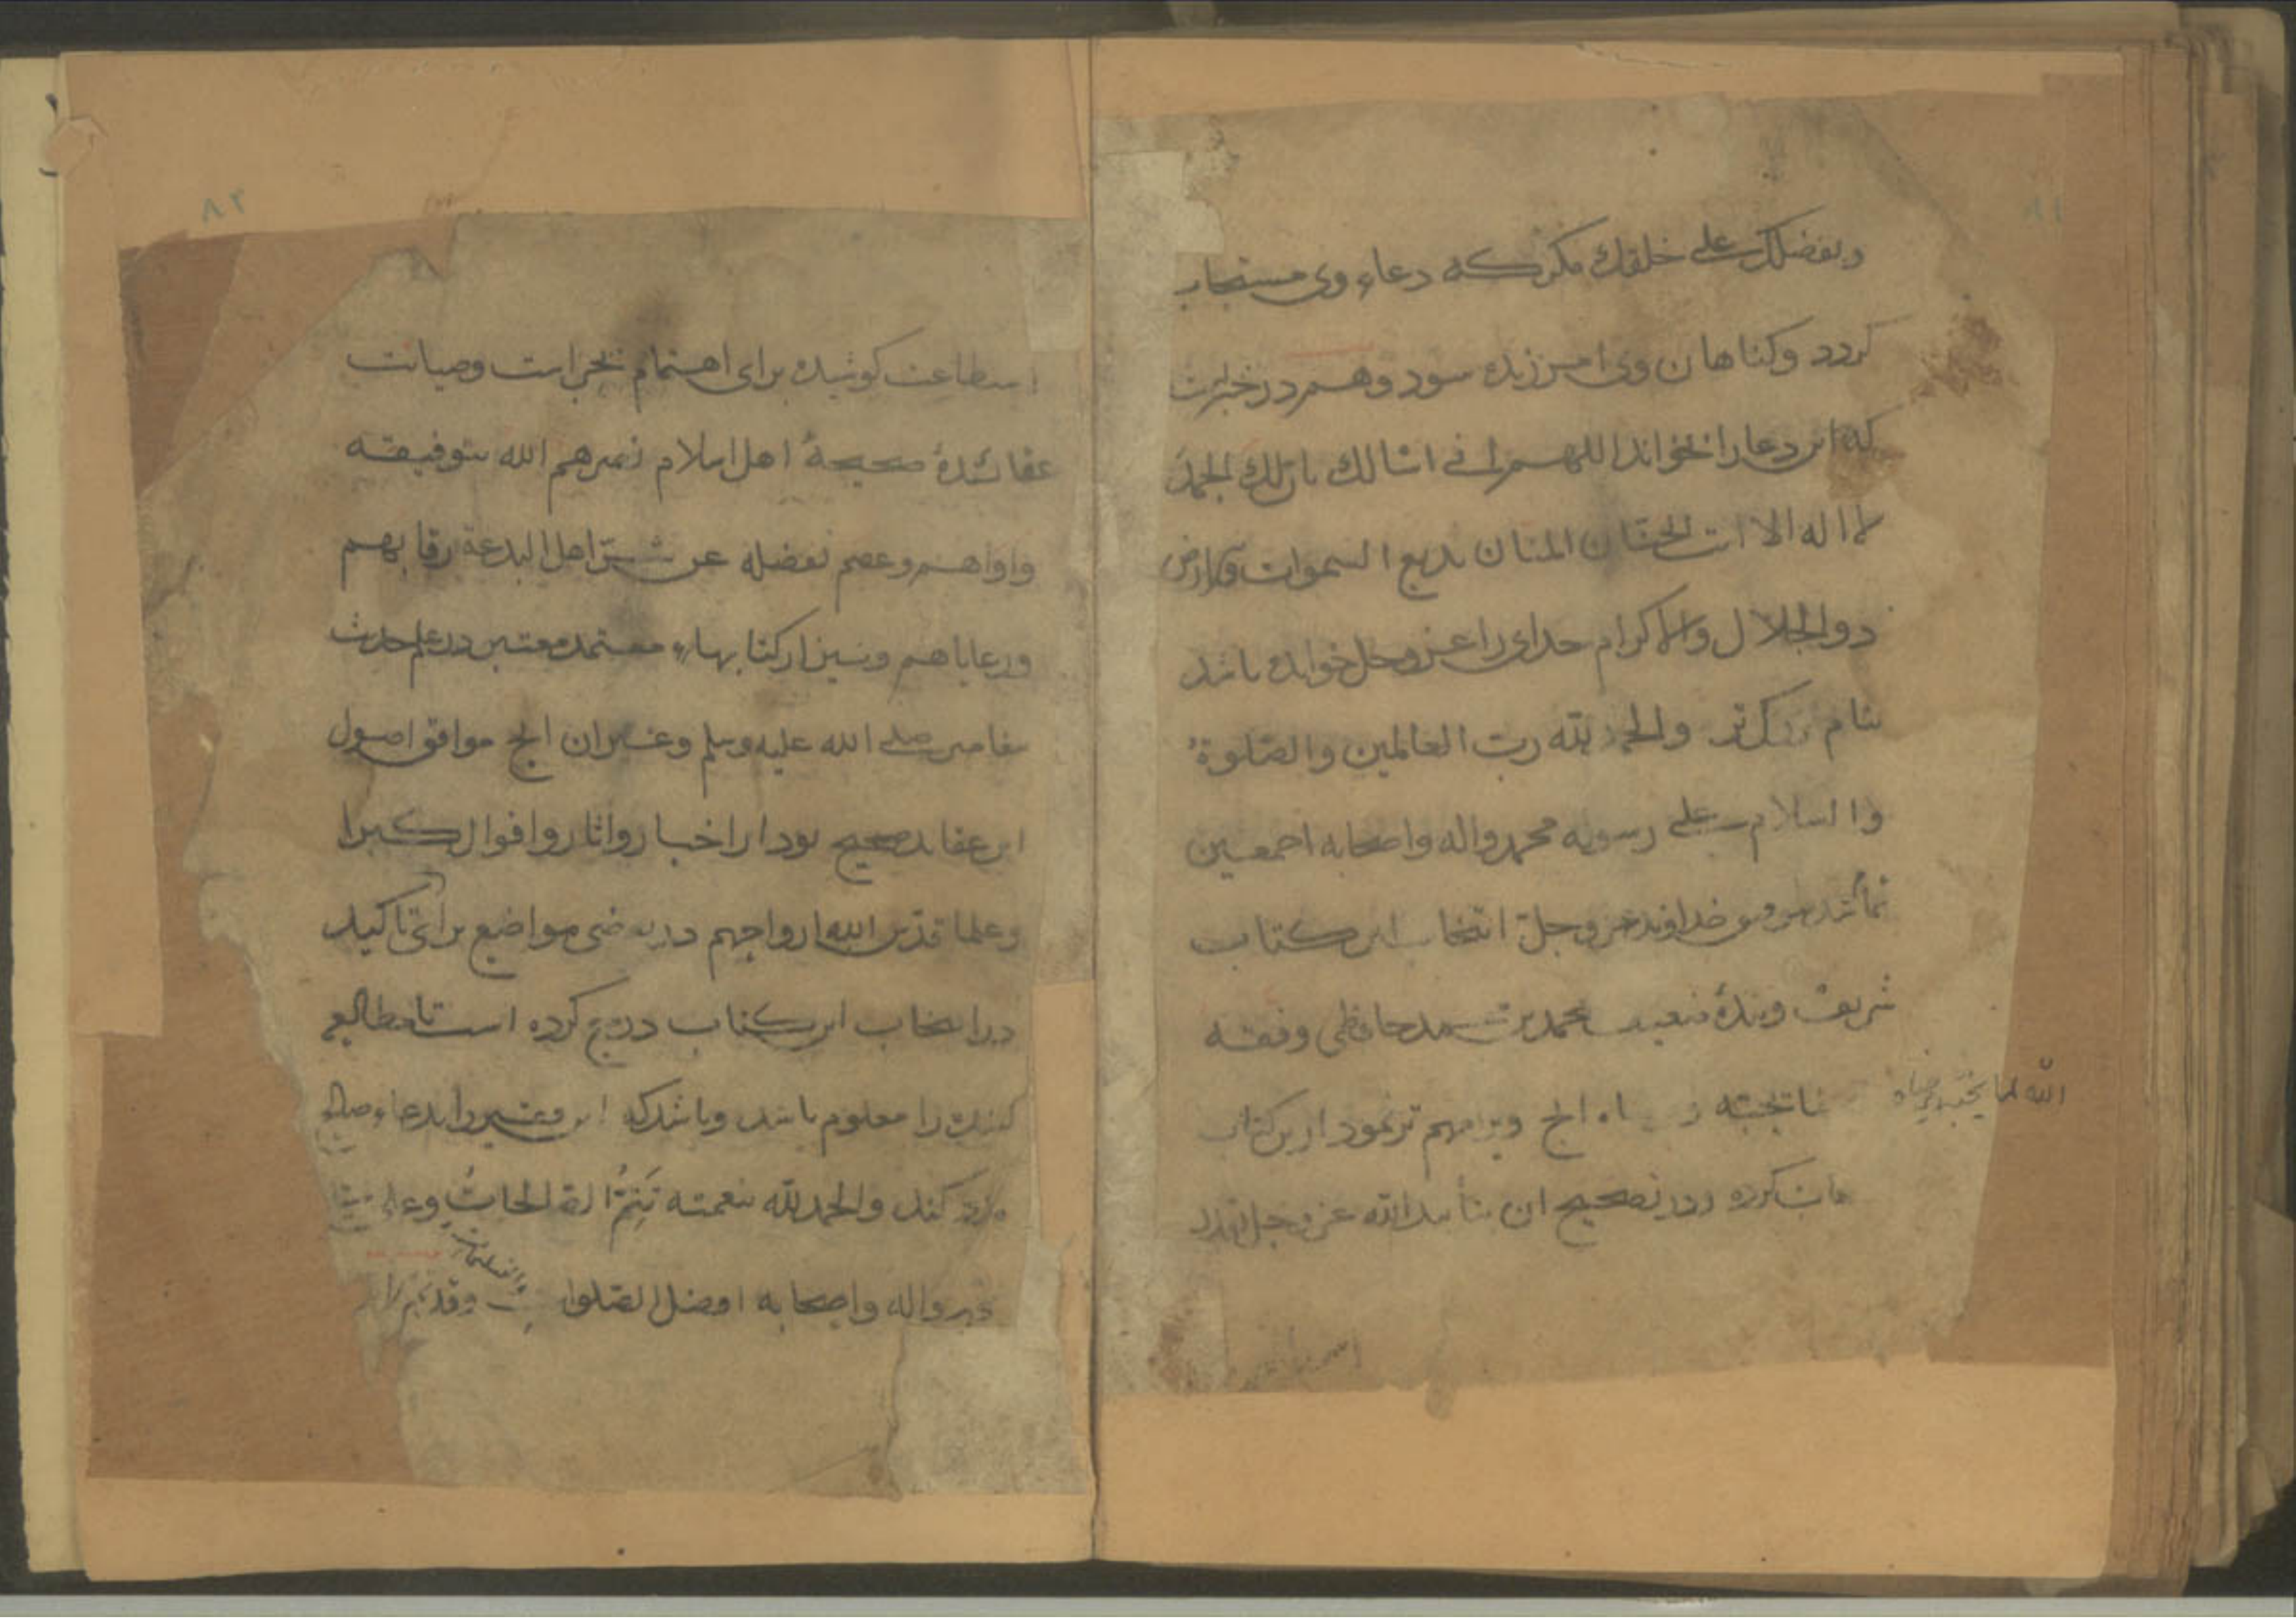 ٨١
وبفضلك على خلقك مكر كه دعاء وی مستجاب
كردد وكناهان وی امرزیده سود وهم در خبراست
كه این دعا را بخواند اللهم انی اسالك بان لك الحمد
لا اله الا انت الحنان المنان بدیع السموات والارض
ذو الجلال والاكرام خدای را عز وجل خوانده باشد
بنام بزركتر والحمد لله رب العالمین والصلوة
والسلام على رسوله محمد واله واصحابه اجمعین
خداوند عز وجل انتخاب این كتاب
شریف وبنده ضعیف محمد بن محمد حافظی وفقه
الله لما یحبه ویرضاه
الخ وبرا مهم تر نمود ازین كتاب
كرده ودر تصحیح ان بتأیید الله عز وجل بقدر
٨٢
استطاعت كوشیده برای اهتمام بحراست وصیانت
عقائد صحیحهٔ اهل اسلام نصرهم الله بتوفیقه
واواهم وعصم بفضله عن شر اهل البدعة رقابهم
ورعایاهم ونیز از كتابهاء معتمد معتبر در علم حدیث
پیغامبر صلى الله علیه وسلم وغیر ان الخ موافق اصول
این عقاید صحیح بود از اخبار واثار واقوال كبرا
وعلما قدس الله ارواحهم در بعضی مواضع برای تاكید
در انتخاب این كتاب درج كرده است تا مطالعه
كننده را معلوم باشد وباشد كه این فقیر را بدعاء صالح
مدد كند والحمد لله بنعمته تتم الصالحات وعلى
واله واصحابه افضل الصلوات
والتسلیمات